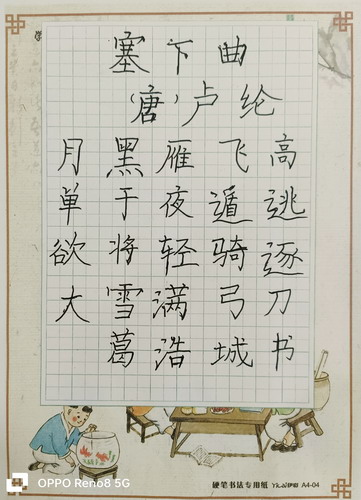 塞下曲
（唐）卢纶
月黑雁飞高
单于夜遁逃
欲将轻骑逐
大雪满弓刀
葛浩城书
硬笔书法专用纸 A4-04
OPPO Reno8 5G